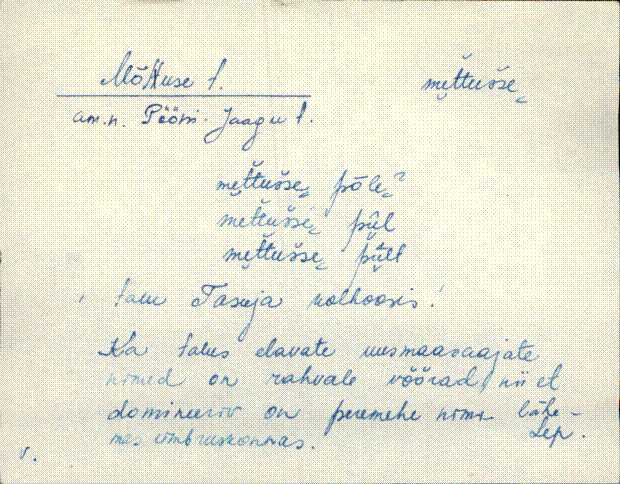 Mõttuse t. mettušse
am.n. Pööni-Jaagu t.
mettušse põle?
mettušse pǖl
mettušse pǖlt
talu Tasuja kolhoosis!
Ka talus elavate uusmaasaajate
nimed on rahvale võõrad, nii et
domineeriv on peremehe nimi lähe-
mas ümbruskonnas. Lep.
v.